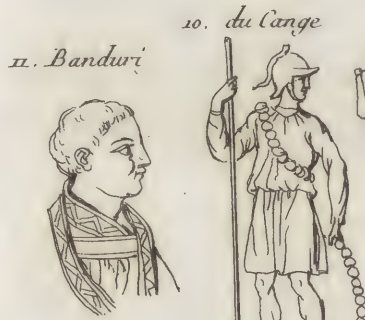 10. du Cange
11. Banduri